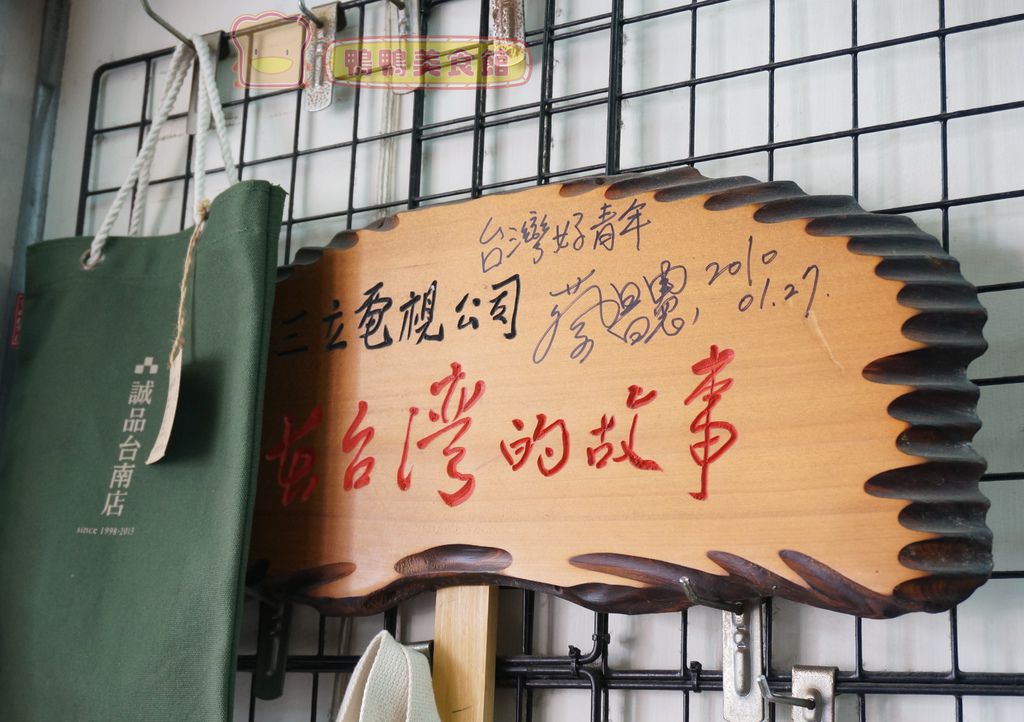 鴨鴨美食館
台灣好青年
蔡昌憲 2010
01.27.
三立電視公司
台灣的故事
誠品台南店
since 1998-2013